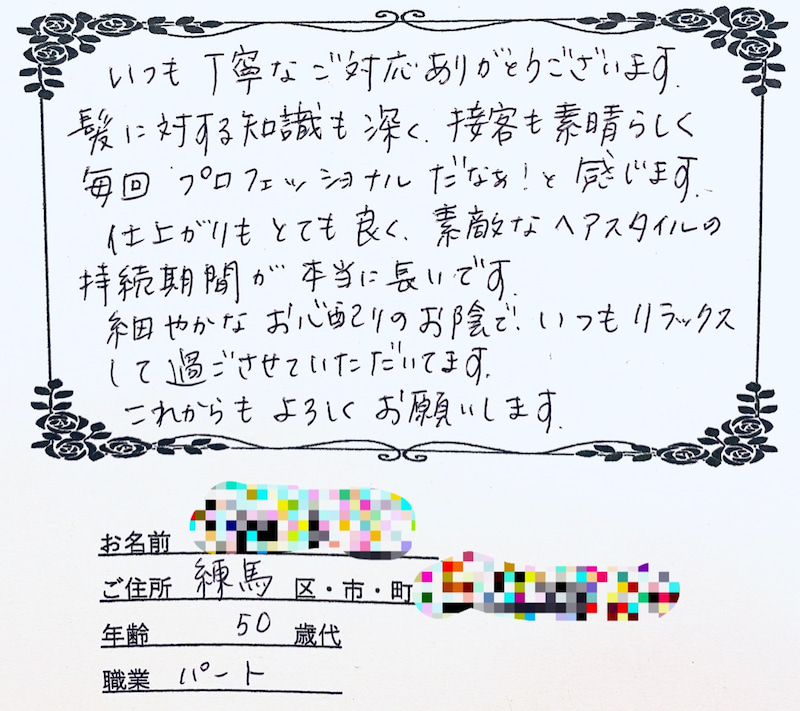 いつも丁寧なご対応ありがとうございます.
髪に対する知識も深く、接客も素晴らしく
毎回プロフェッショナルだなぁ!と感じます.
仕上がりもとても良く、素敵なヘアスタイルの
持続期間が本当に長いです.
細やかなお心配りのお陰で、いつもリラックス
して過ごさせていただいてます.
これからもよろしくお願いします.
お名前
ご住所 練馬 区・市・町
年齢 50 歳代
職業 パート